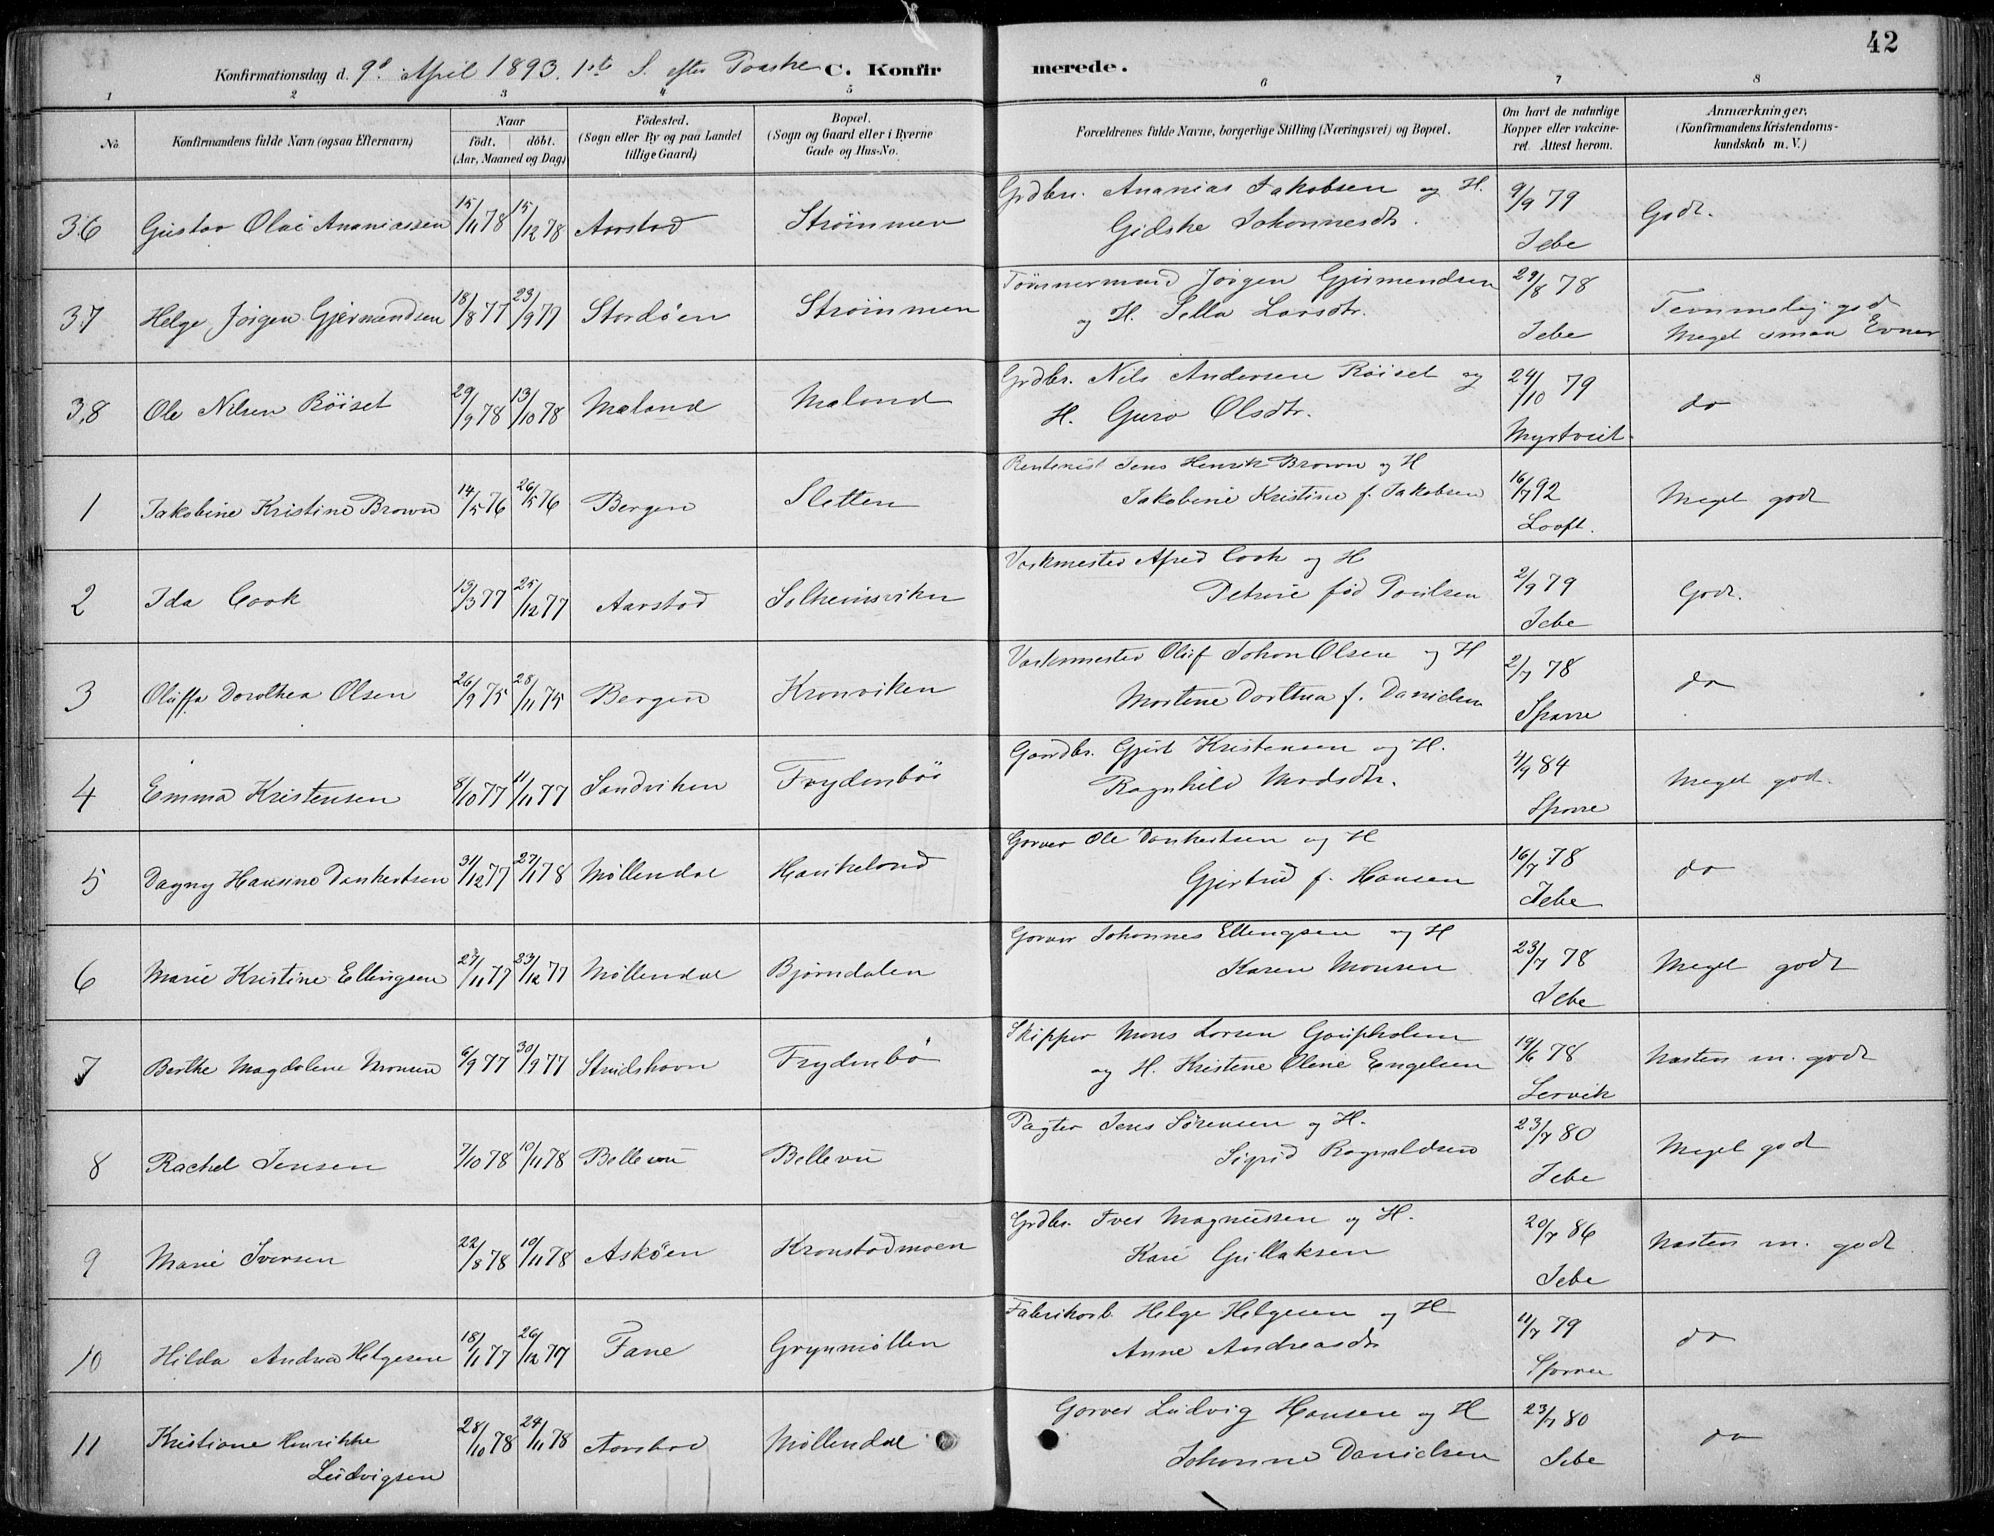 42
Konfirmationsdag d. 9de April 1893. 1ste S. efter Paaske C. Konfirmerede.
1 2 3 4 5 6 7 8
No
Konfirmandens fulde Navn (ogsaa Efternavn)
Naar
födt. döbt.
(Aar, Maaned og Dag)
Födested.
(Sogn eller By og paa Landet
tillige Gaard)
Bopæl.
(Sogn og Gaard eller i Byerne
Gade og Hus-No.
Forældrenes fulde Navne, borgerlige Stilling (Næringsvei) og Bopæl.
Om havt de naturlige
Kopper eller vakcine-
ret. Attest herom.
Anmærkninger.
(Konfirmandens Kristendoms-
kundskab m. V.)
36 Gustav Olai Ananiassen 15/11 78 15/12 78 Aarstad Strømmen Grdbr. Ananias Jakobsen og H. 9/9 79 Godt.
Gidske Johannesdtr. Jebe
37 Helge Jörgen Gjermendsen 18/8 77 23/9 77 Stordöen Strömmen Tömmermand Jörgen Gjermendsen 29/8 78 Temmelig godt
og H. Sella Larsdtr. Jebe Meget smaa Evner
38 Ole Nilsen Röiset 29/9 78 13/10 78 Mæland Mæland Grdbr. Nils Andersen Röiset og 24/10 79 do
H. Guro Olsdtr. Myrtveit
1 Jakobine Kristine Brown 14/5 76 26/5 76 Bergen Sletten Rentenist Jens Henrik Brown og H 16/7 92 Meget godt
Jakobine Kristine f. Jakobsen Looft.
2 Ida Cook 13/3 77 25/12 77 Aarstad Solheimsviken Vaskmester Afred Cook og H 2/9 79 Godt.
Petrine fød Poulsen Jebe
3 Oluffa Dorothea Olsen 26/9 75 28/11 75 Bergen Kronviken Vaskmester Oluf Johan Olsen og H 2/7 78 do
Martine Dorthea f. Danielsen Sparre
4 Emma Kristensen 8/10 77 11/11 77 Sandviken Frydenbö Gaardbr. Gjert Kristensen og H. 4/9 84 Meget godt.
Ragnhild Madsdtr. Sparre
5 Dagny Hansine Dankertsen 31/12 77 27/1 78 Møllendal Haukeland Garver Ole Dankertsen og H 16/7 78 do
Gjertrud f. Hansen Jebe
6 Marie Kristine Ellingsen 27/11 77 23/12 77 Møllendal Bjørndalen Garver Johannes Ellingsen og H 23/7 78 Meget godt
Karen Monsen Jebe
7 Berthe Magdalene Monsen 6/9 77 30/9 77 Strudshavn Frydenbö Skipper Mons Larsen Gaupholm 19/6 78 Næsten m. godt
og H. Kristine Olene Engelsen Lervik
8 Rachel Jensen 7/10 78 10/11 78 Bellevu Bellevu Pagter Jens Sørensen og H. 23/7 80 Meget godt
Sigrid Ragnaldsen Jebe
9 Marie Iversen 22/8 78 10/11 78 Asköen Kronstadmoen Grdbr. Iver Magnussen og H. 20/7 86 Næsten m. godt
Kari Gullaksen Jebe
10 Hilda Andrea Helgesen 18/11 77 26/12 77 Fane Grynmøllen Fabrikarb. Helge Helgesen og H 11/7 79 do
Anne Andreasdtr Sparre
11 Kristiane Henrikke 28/10 78 24/11 78 Aarstad Møllendal Garver Ludvig Hansen og H 23/7 80 do
Ludvigsen Johanne Danielsen Jebe